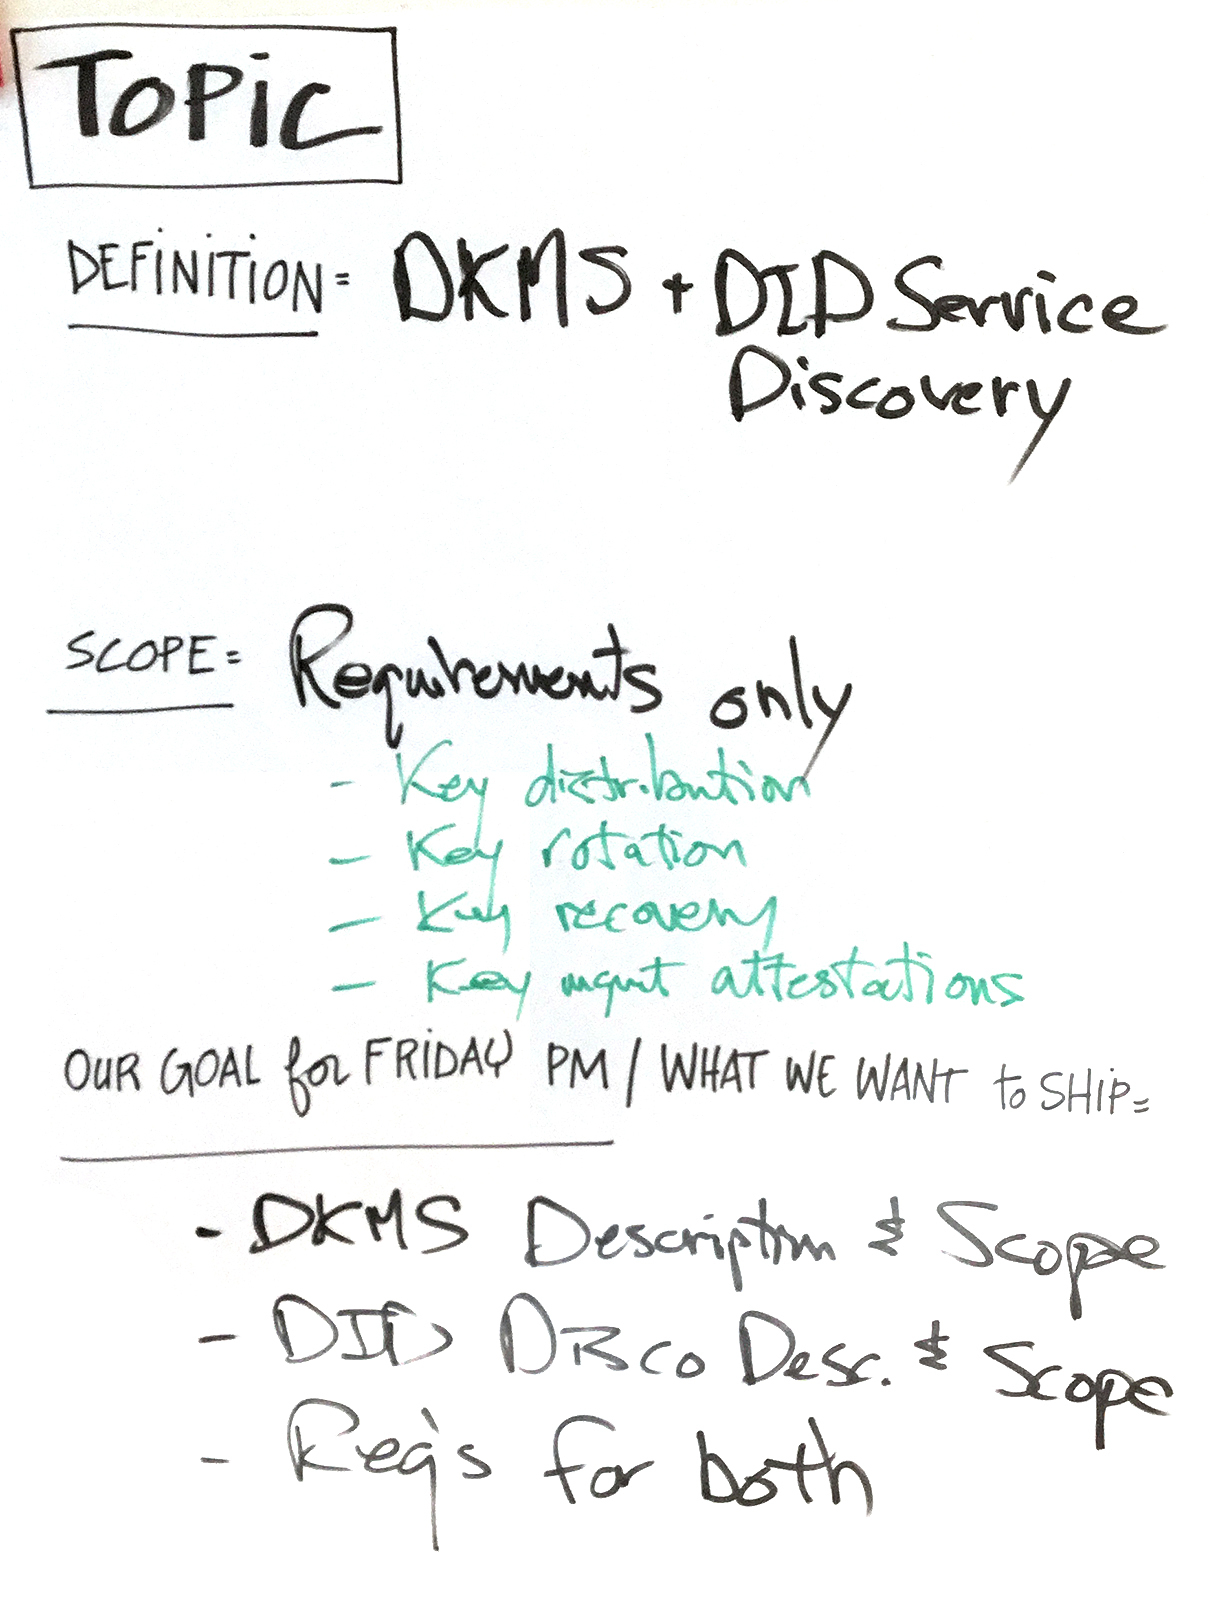 TOPiC
DEFiNiTiON= DKMS + DID Service
Discovery
SCOPE= Requirements only
- Key distribution
- Key rotation
- Key recovery
- Key mgmt attestations
OUR GOAL for FRiDAY PM / WHAT WE WANT to SHiP=
- DKMS Description & Scope
- DID Disco Desc. & Scope
- Req's for both